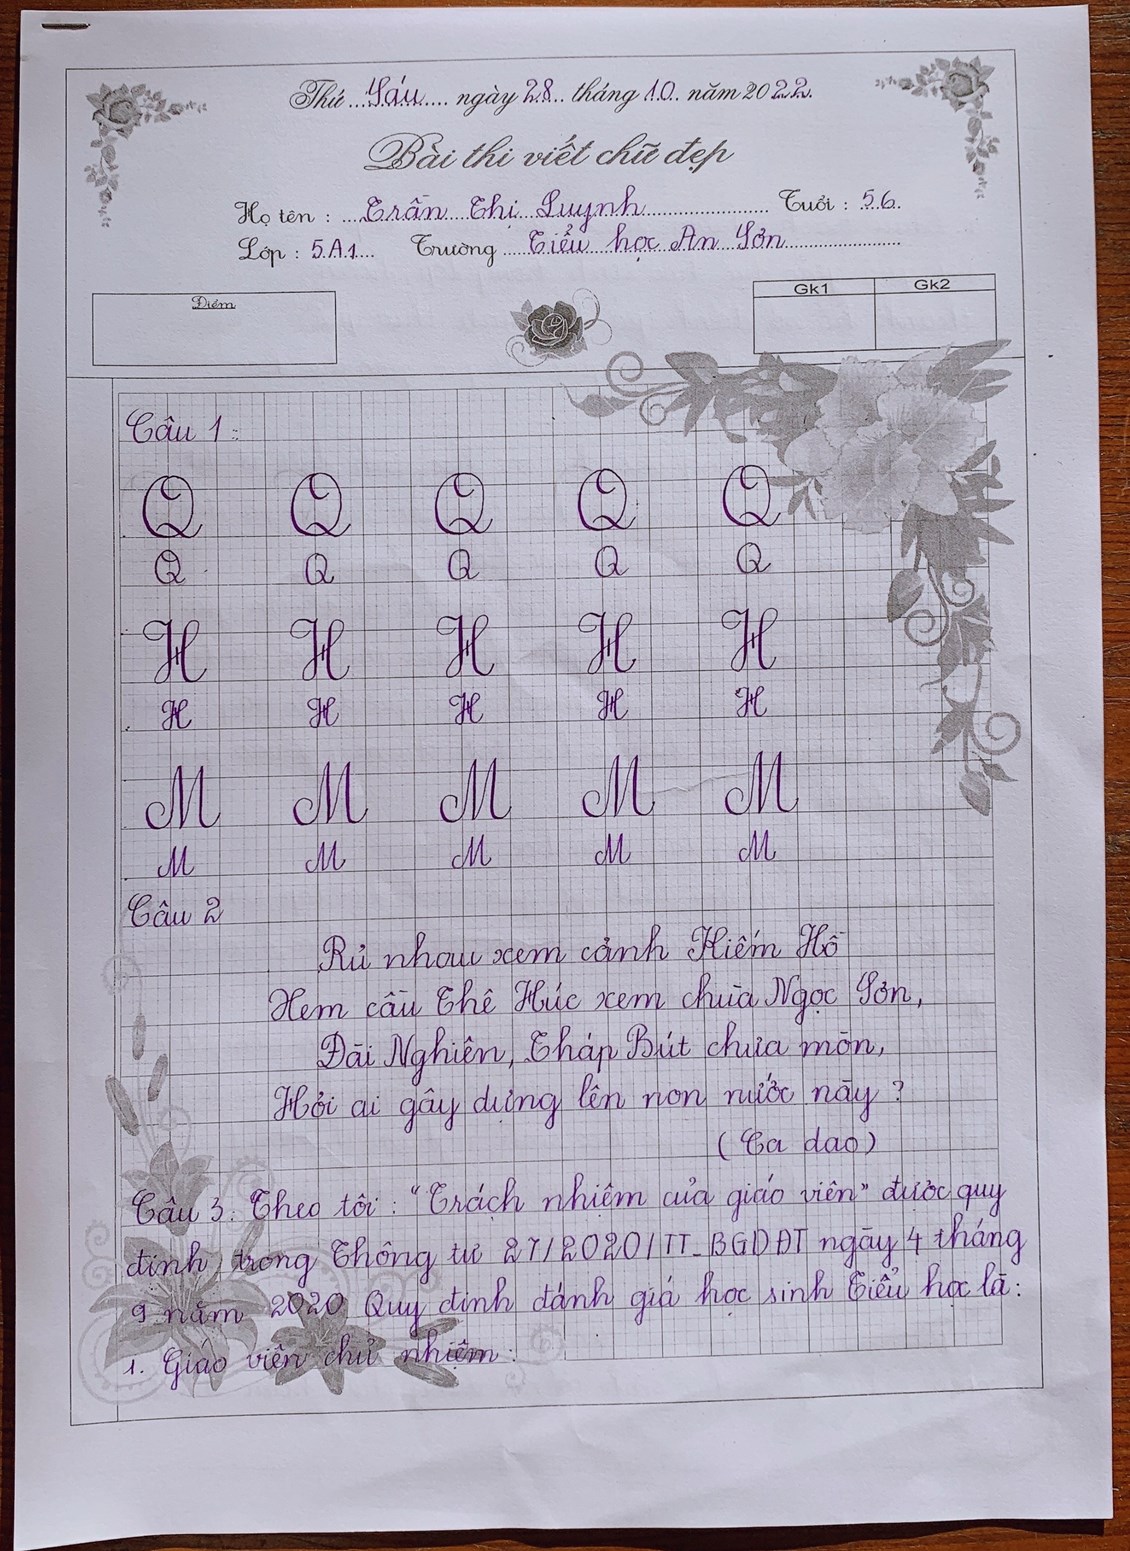 Thứ Sáu ngày 28 tháng 10 năm 2022
Bài thi viết chữ đẹp
Họ tên : Trần Thị Quynh Tuổi : 56
Lớp : 5A1 Trường Tiểu học An Sơn
Điểm
Gk1 Gk2
Câu 1:
Q Q Q Q Q
Q Q Q Q Q
H H H H H
H H H H H
M M M M M
M M M M M
Câu 2
Rủ nhau xem cảnh Kiếm Hồ
Xem cầu Thê Húc xem chùa Ngọc Sơn,
Đài Nghiên, Tháp Bút chưa mòn,
Hỏi ai gây dựng lên non nước này ?
( Ca dao)
Câu 3: Theo tôi : "Trách nhiệm của giáo viên" được quy
định trong Thông tư 27/2020/TT_BGDĐT ngày 4 tháng
9 năm 2020 Quy định đánh giá học sinh Tiểu học là:
1. Giáo viên chủ nhiệm :